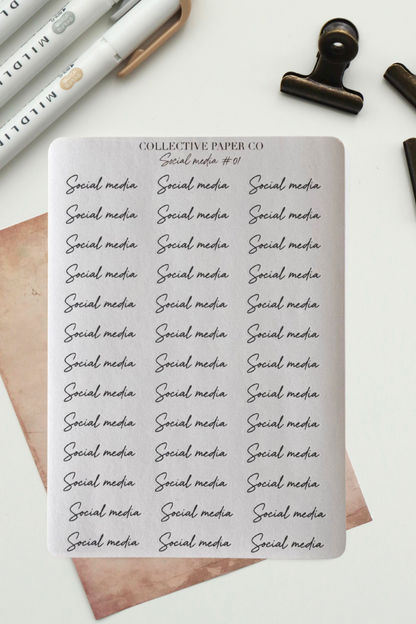 MILDLI
MILDLIN
MILDLI
COLLECTIVE PAPER CO
Social media #01
Social media Social media Social media
Social media Social media Social media
Social media Social media Social media
Social media Social media Social media
Social media Social media Social media
Social media Social media Social media
Social media Social media Social media
Social media Social media Social media
Social media Social media Social media
Social media Social media Social media
Social media Social media Social media
Social media Social media Social media
Social media Social media Social media